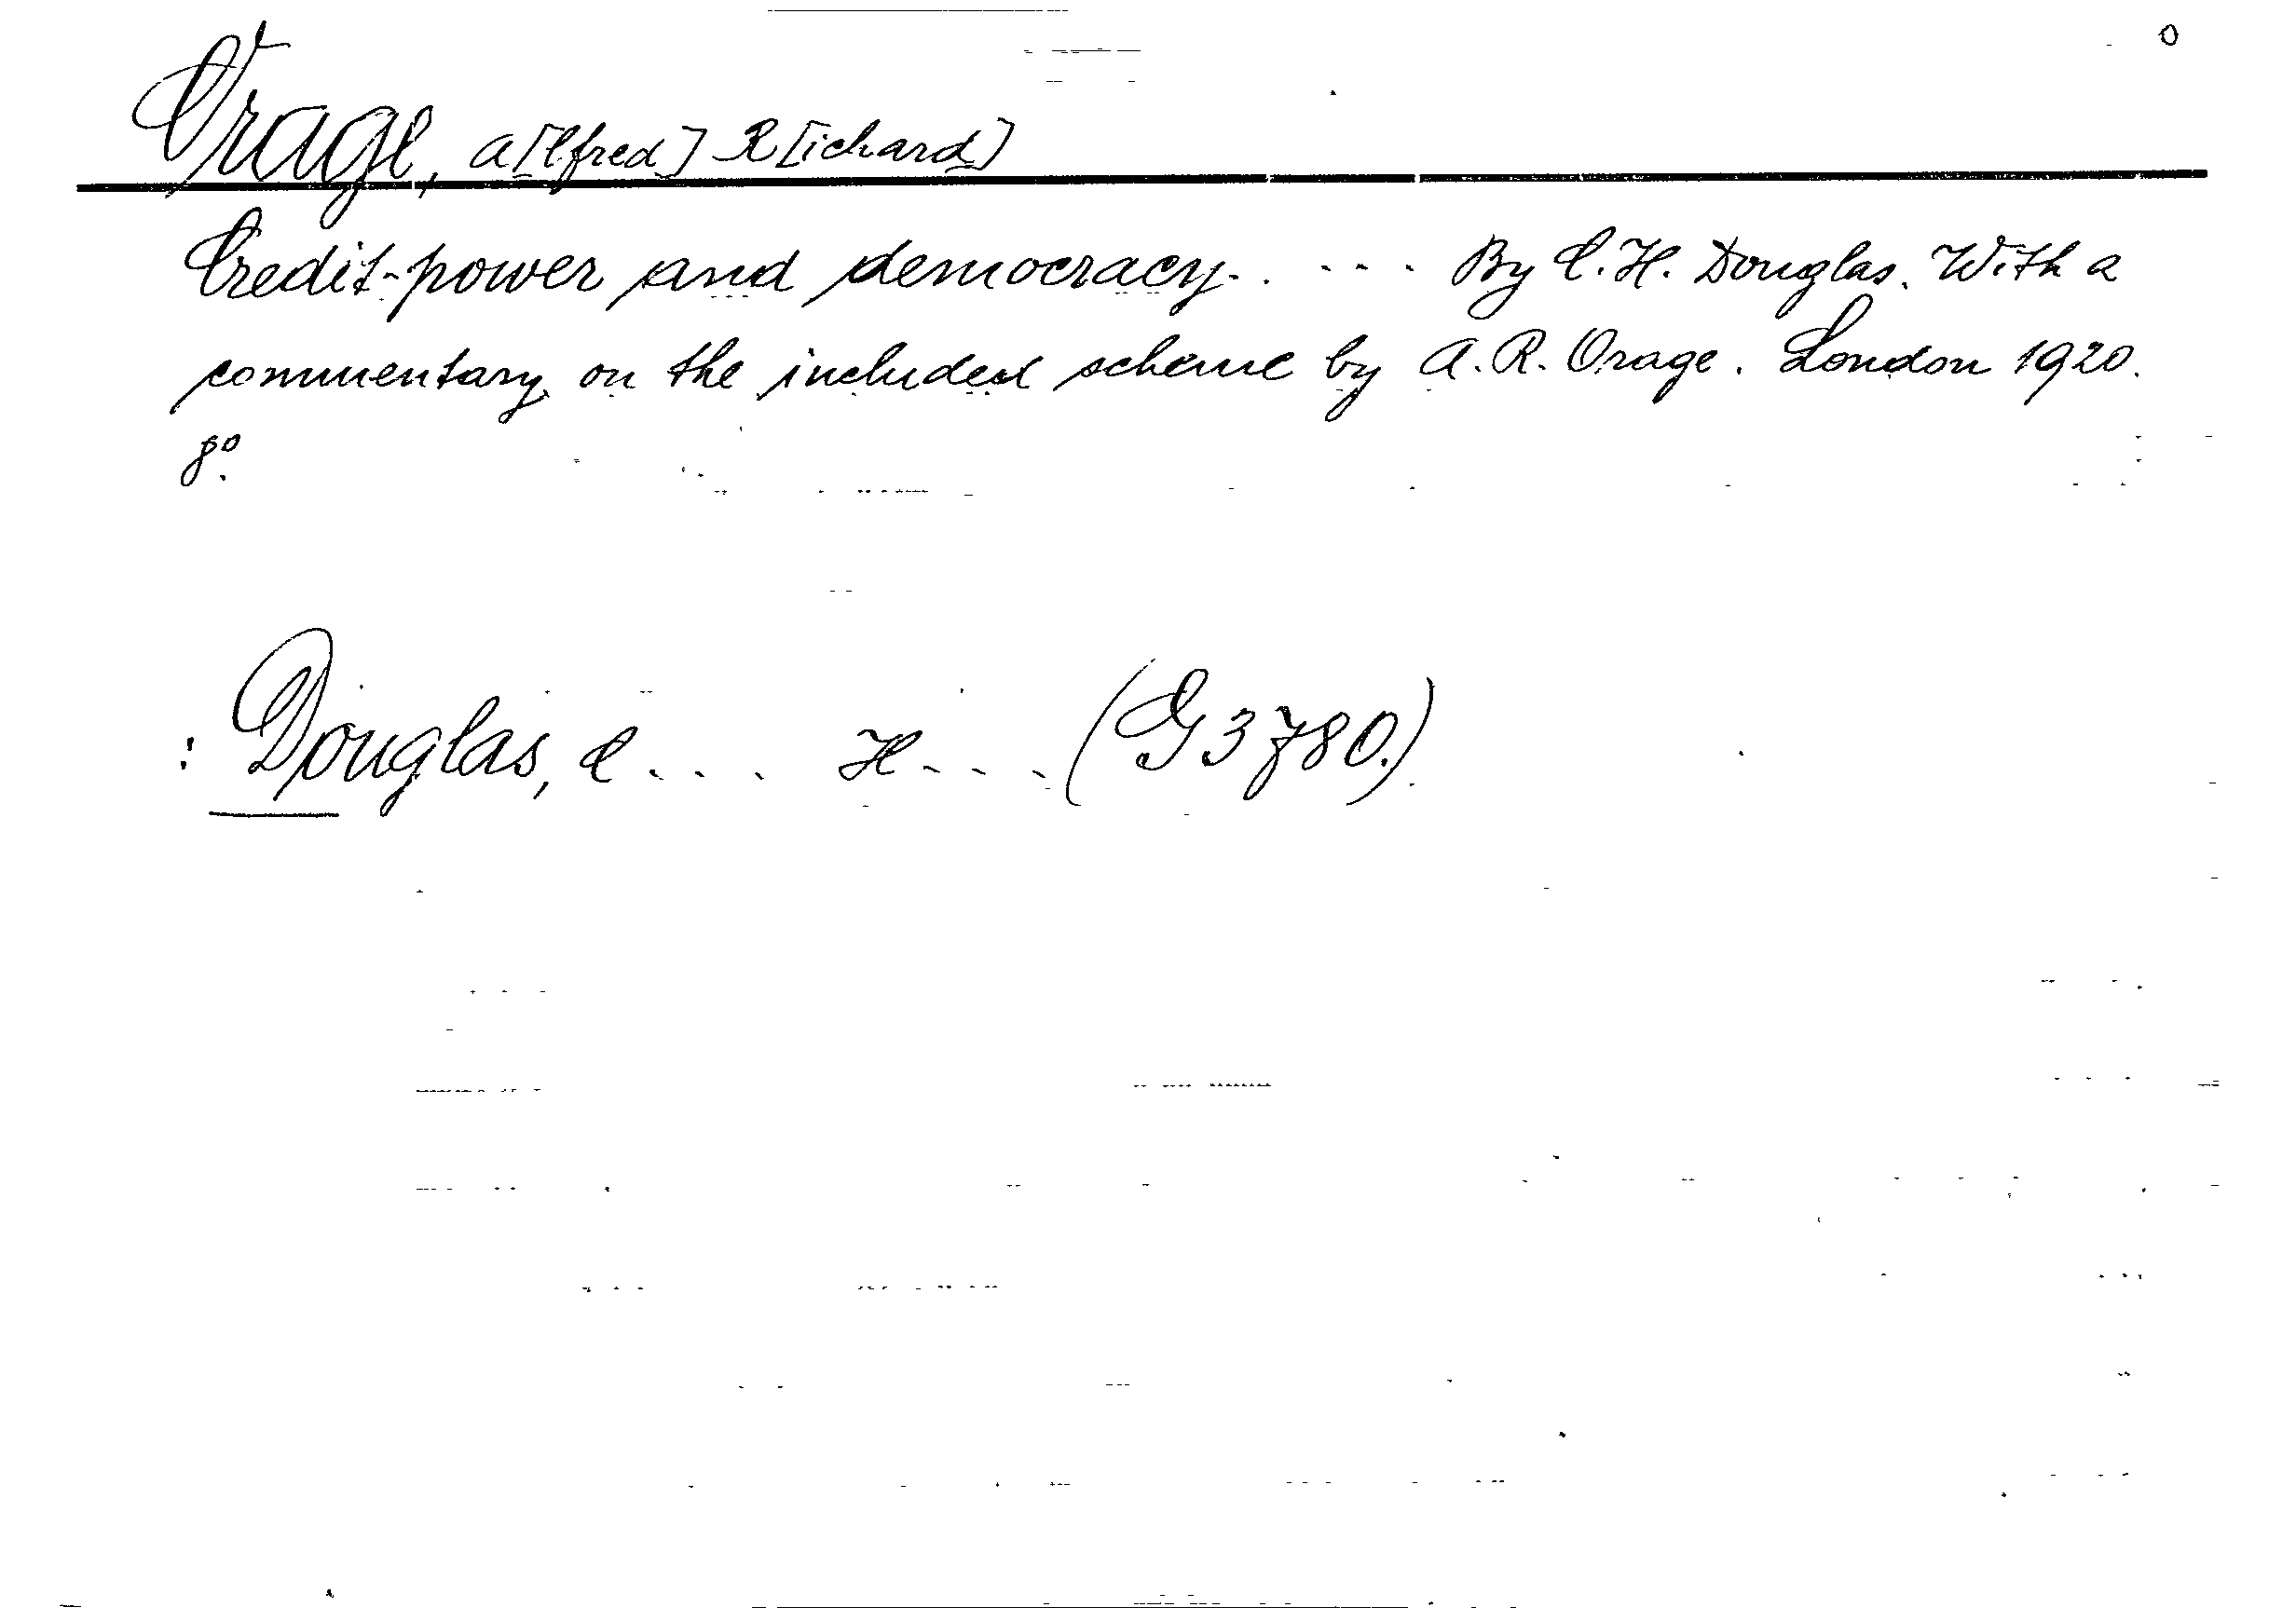 O
Orage, A[lfred] R[ichard]
Credit-power and democracy. . . . . By C. H. Douglas. With a
commentary on the included scheme by A. R. Orage. London 1920.
8°.
: Douglas, C . . . H . . . (G 3780.)